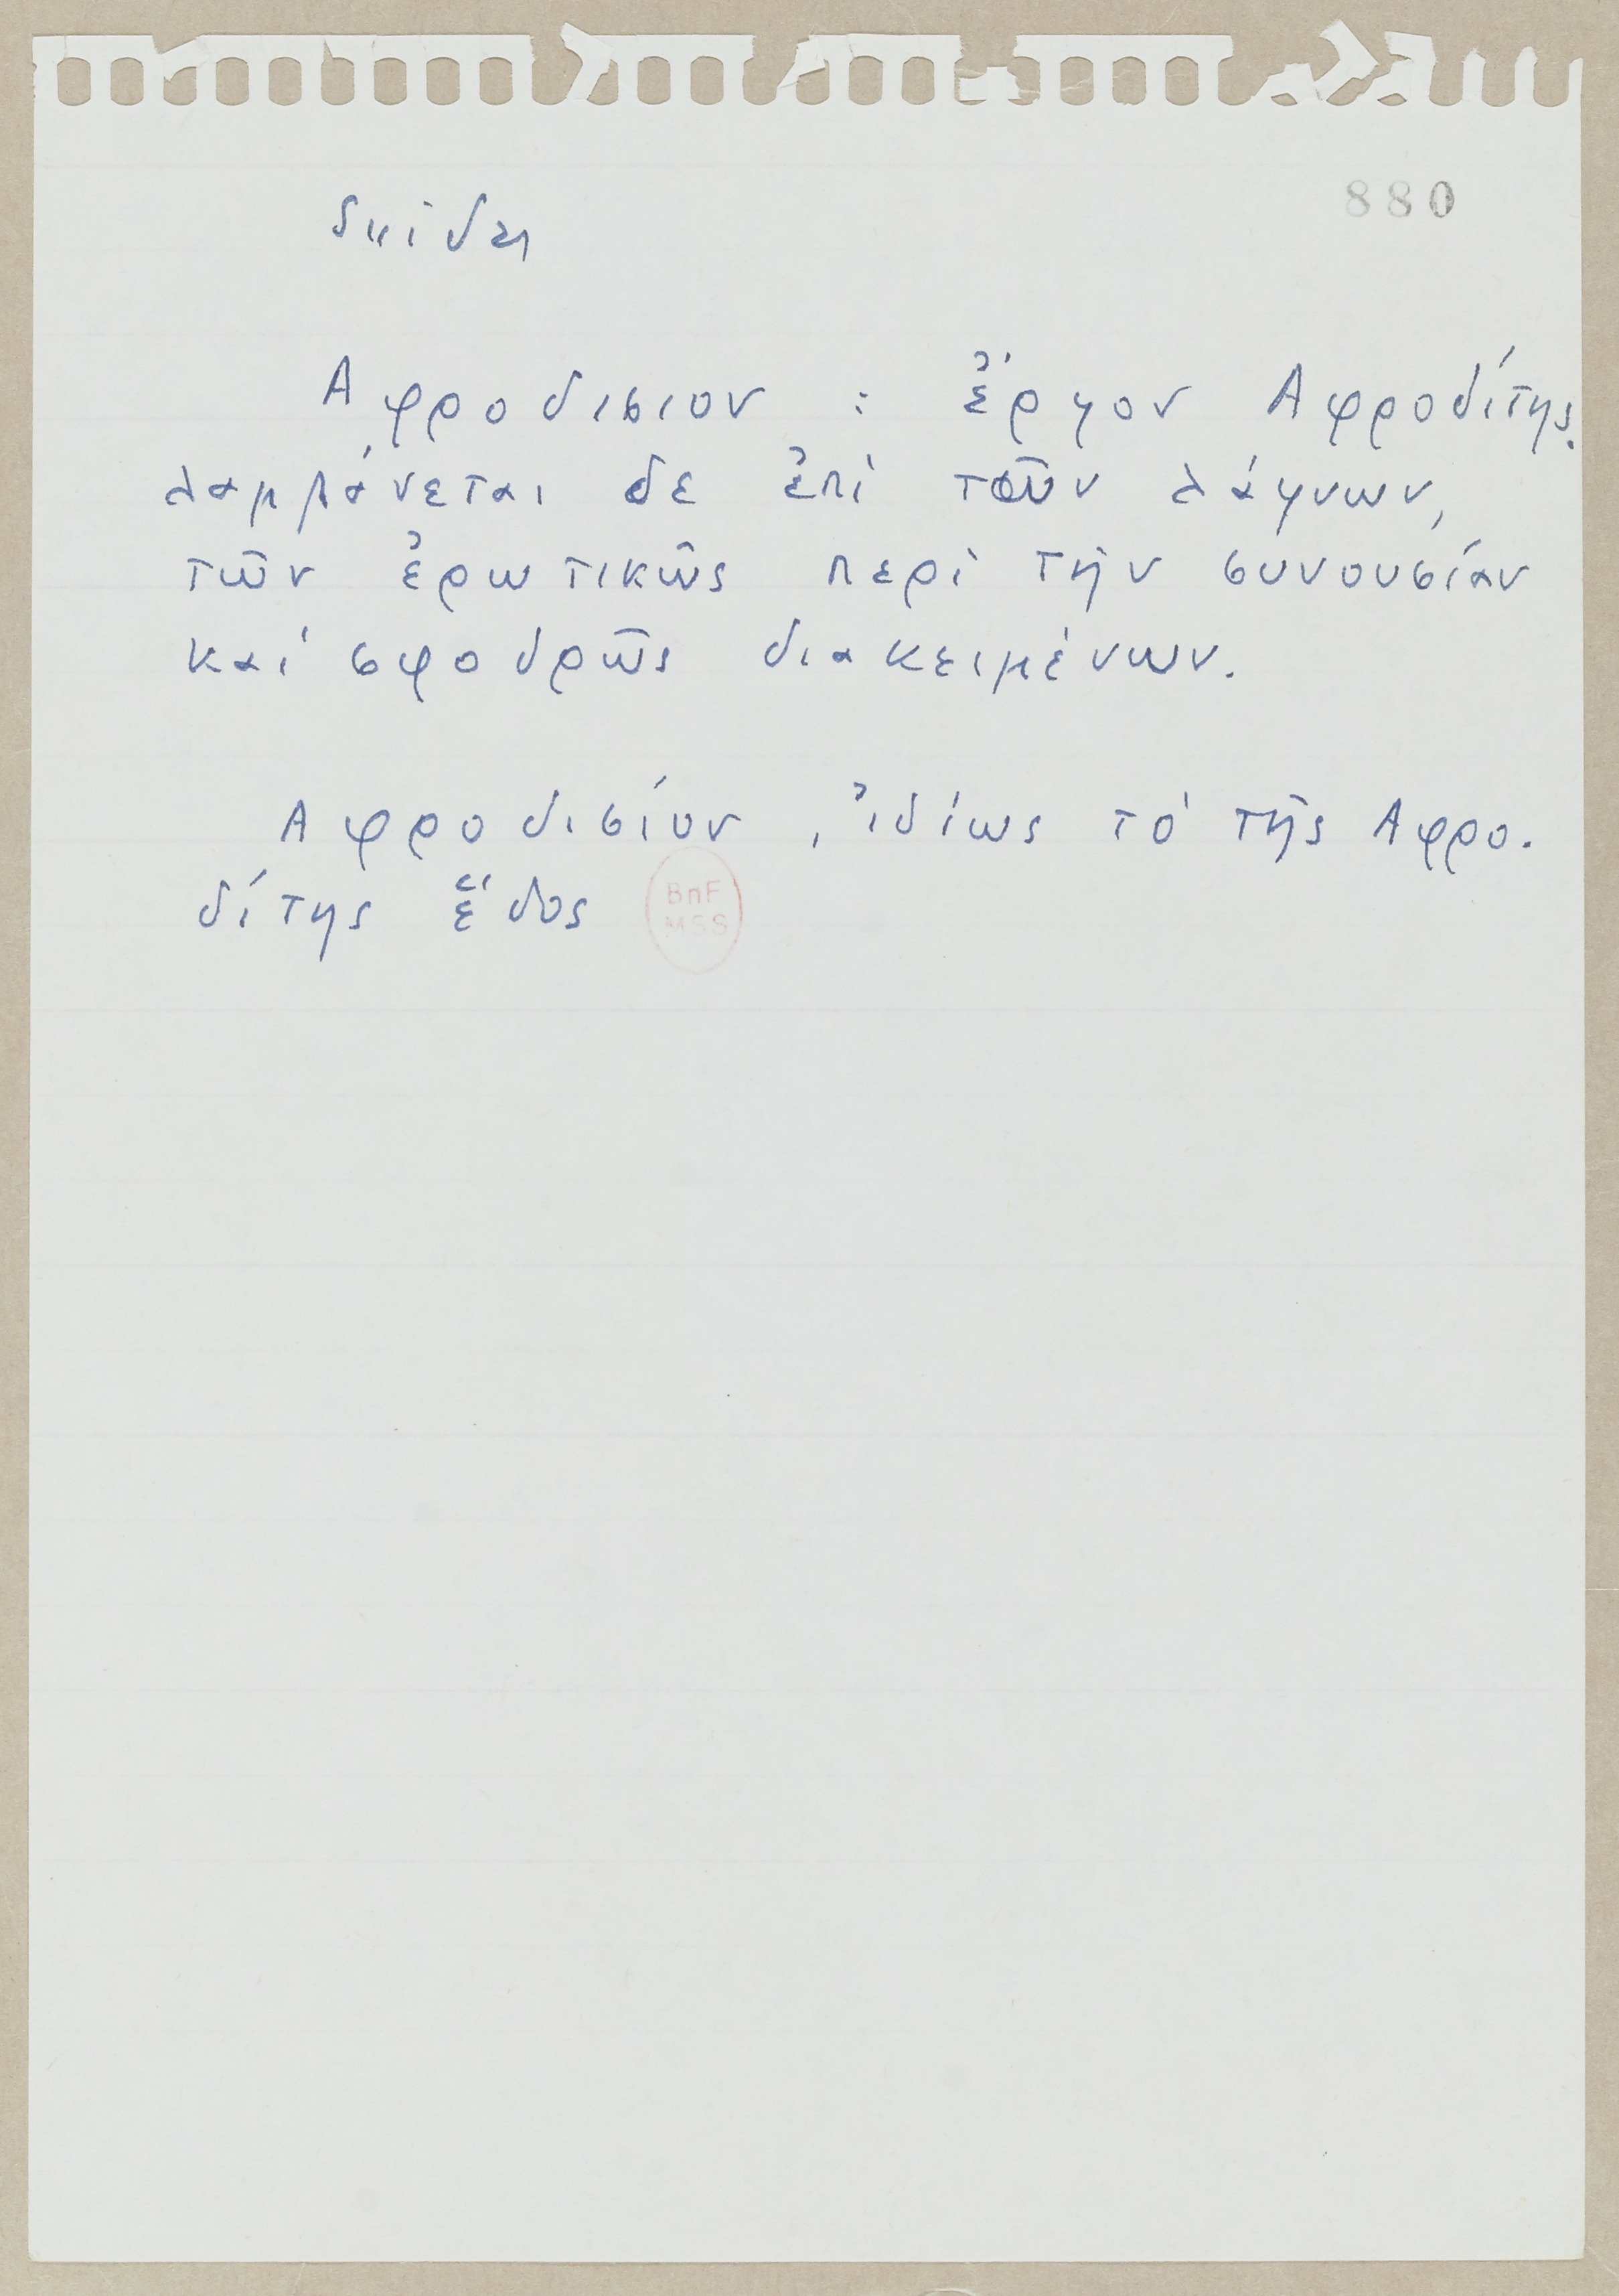 880
Αφροδισιον : ἔργον Αφροδίτης.
λαμβάνεται δε ἐπὶ τῶν λάγνων,
τῶν ἐρωτικῶς περὶ τὴν συνουσίαν
καὶ σφοδρῶς διακειμένων.
Αφροδισίον, ἰδίως τὸ τῆς Αφρο.
δίτης ἕδος
BnF
MSS